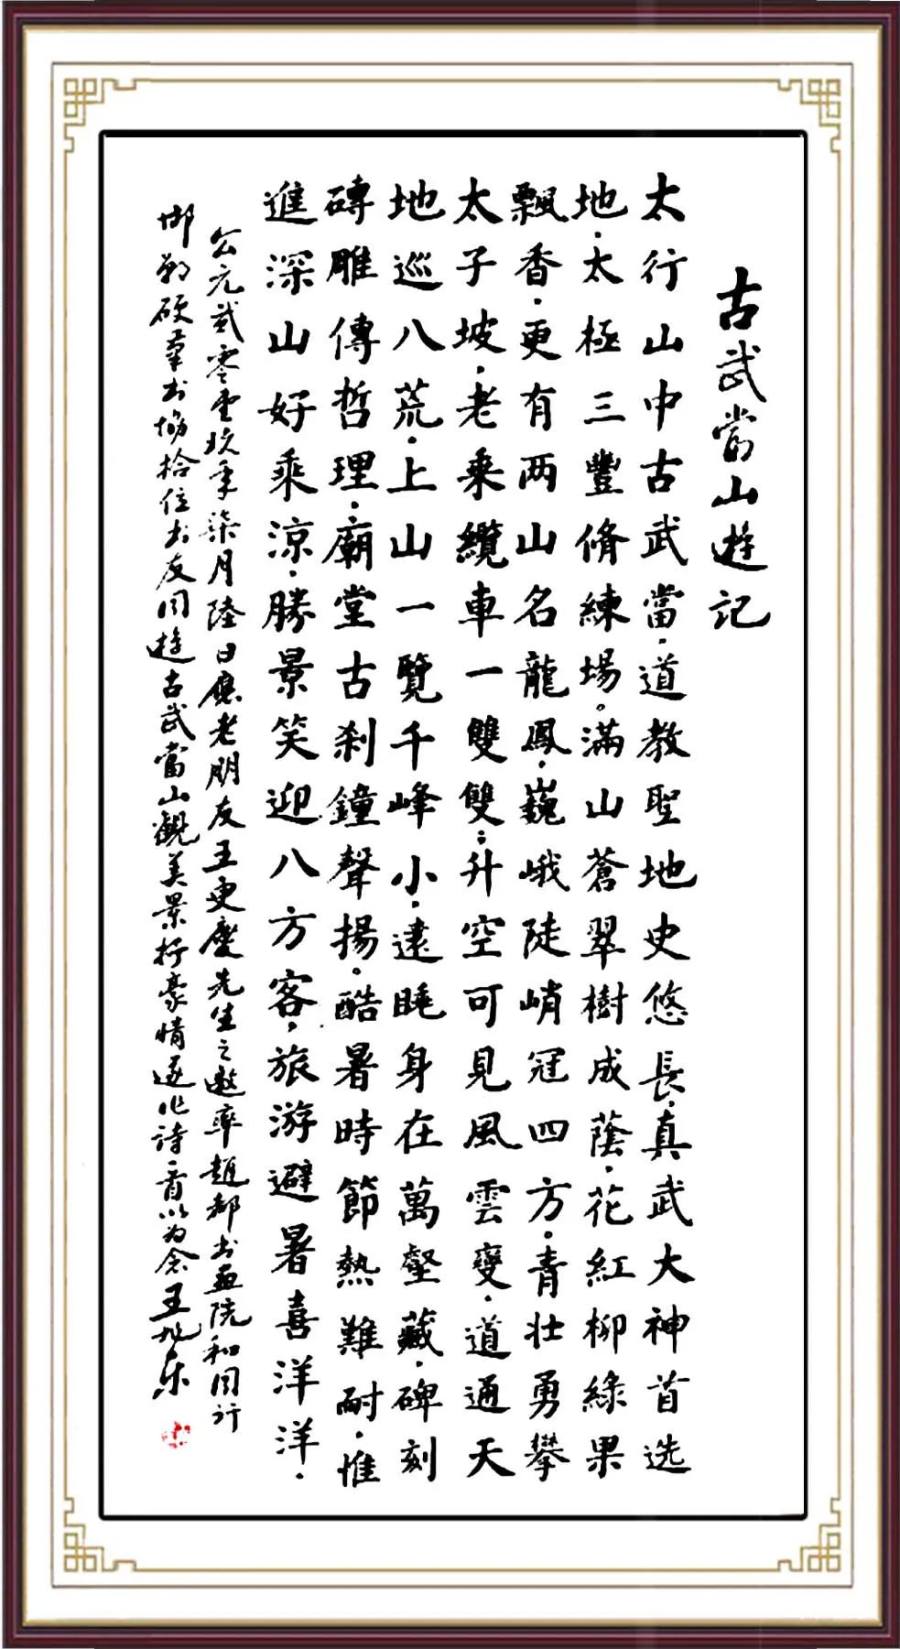 古武當山遊記
太行山中古武當,道教聖地史悠長,真武大神首选
地,太極三豐脩練場。滿山蒼翠樹成蔭,花紅柳綠果
飄香,更有两山名龍鳳,巍峨陡峭冠四方。青壮勇攀
太子坡,老乘纜車一雙雙;升空可見風雲變,道通天
地巡八荒,上山一覽千峰小,逮睡身在萬壑藏,碑刻
磚雕傳哲理,廟堂古刹鐘聲揚,酷暑時節熱難耐,惟
進深山好乘涼,勝景笑迎八方客,旅游避暑喜洋洋.
公元貳零壹玖年柒月陸日應老朋友王更慶先生之邀率趙都书画院和同行
邯鄲硬筆书協拾位书友同遊古武當山觀美景抒豪情逐作詩一首以为念王旭东